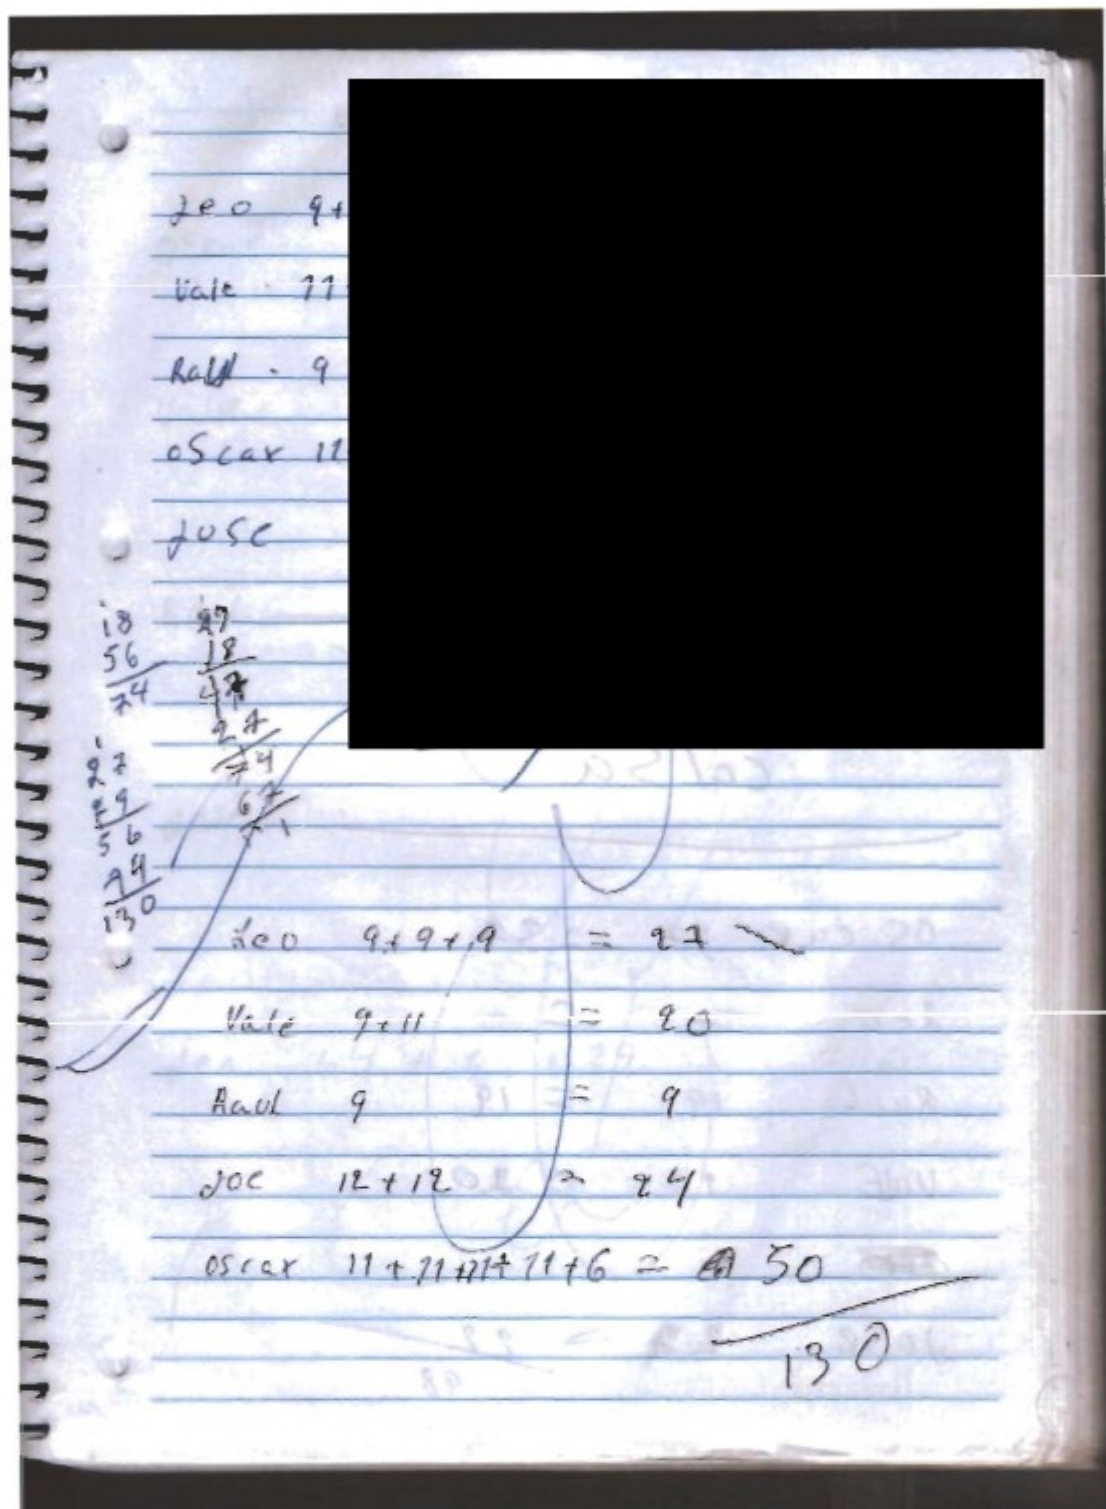 Leo 9+
Vale 11
Raul 9
oscar 11
Jose
18
56
74
27
29
56
74
130
27
18
47
27
74
67
Leo 9+9+9 = 27
Vale 9+11 = 20
Raul 9 = 9
Joe 12+12 = 24
oscar 11+11+11+11+6 = 50
130